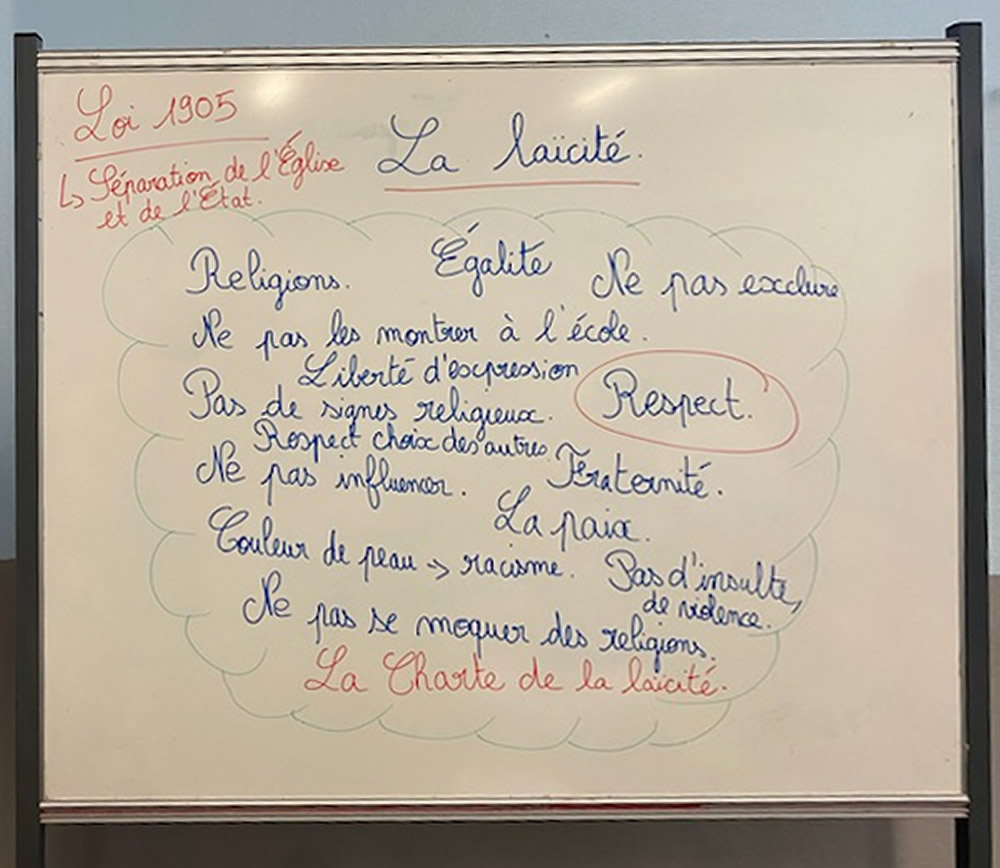 Loi 1905
↳ Séparation de l'Église
et de l'État.
La laïcité.
Religions.
Égalité
Ne pas exclure
Ne pas les montrer à l'école.
Liberté d'expression
Pas de signes religieux.
Respect.
Respect choix des autres.
Ne pas influencer.
Fraternité.
La paix.
Couleur de peau → racisme.
Pas d'insulte,
de violence.
Ne pas se moquer des religions.
La Charte de la laïcité.